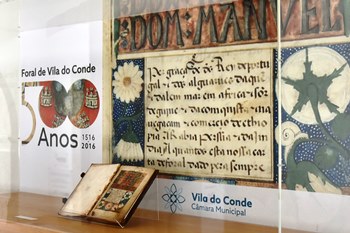 Foral de Vila do Conde
500
Anos
1516
2016
DOM: MANVEL
Per graça de ds Rey de portugal
e dos alguarues daquem
e dalem mar em africa sõr de
guine e da comquista na
vegacam e comercio de ethio
pia Arabia persia e da Jmdia
quantos esta nossa carta
de foral dado pera sempre
Vila do Conde
Câmara Municipal